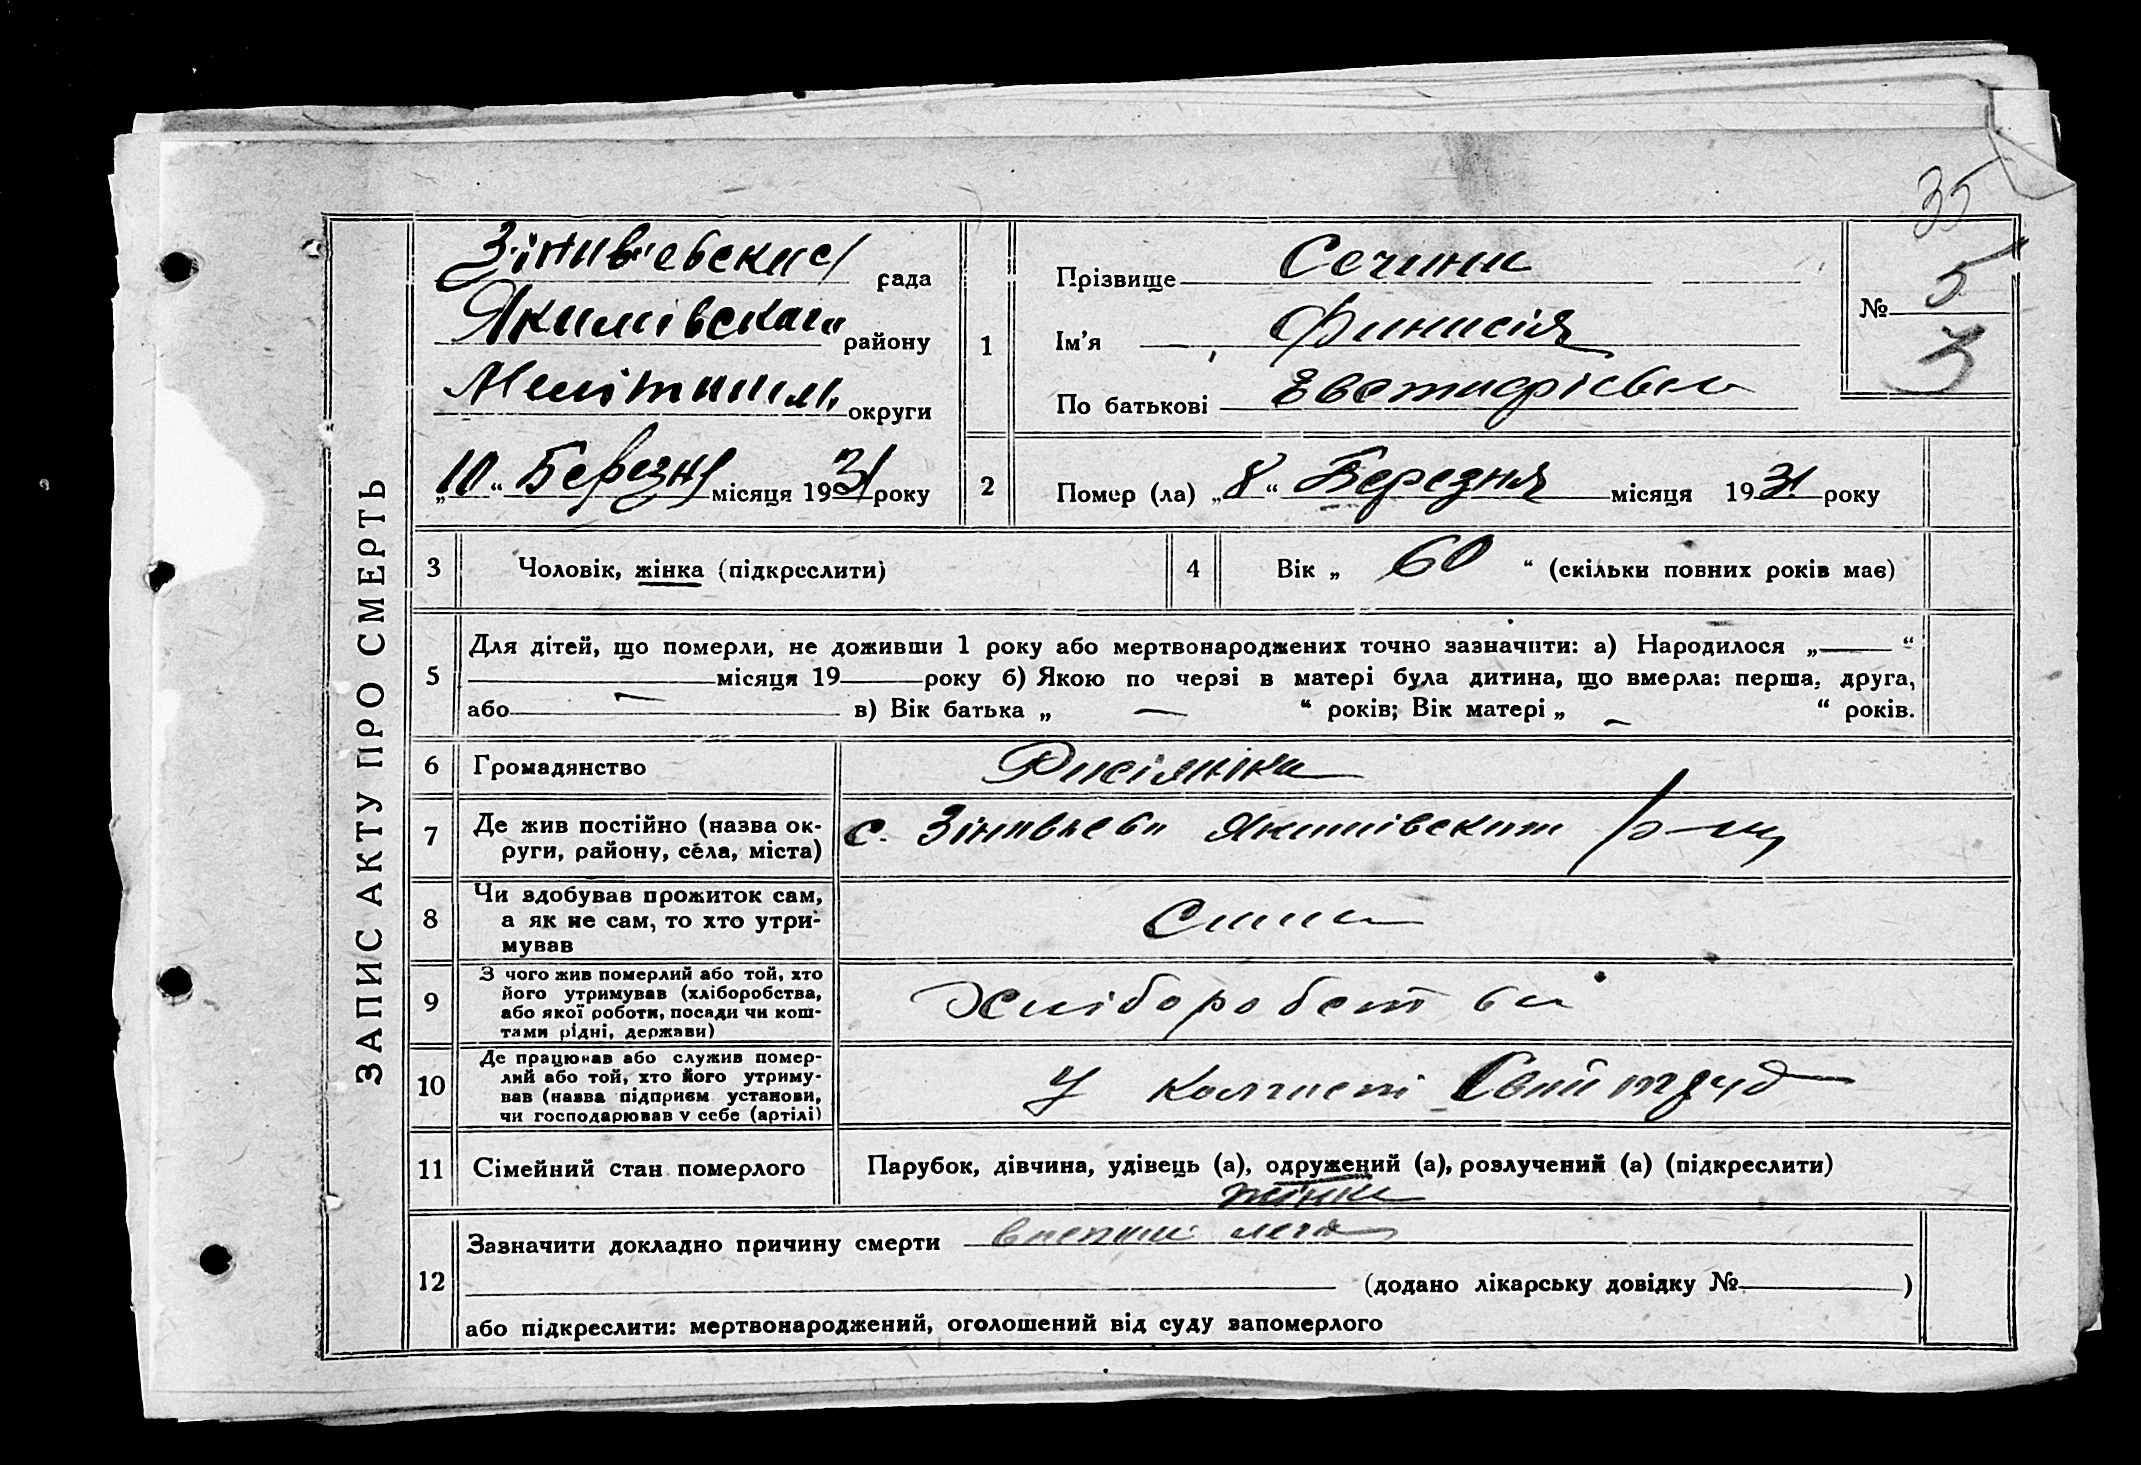 35
ЗАПИС АКТУ ПРО СМЕРТЬ
рада
району
округи
„10“ Березня місяця 1931 року
1
Прізвище
Ім'я
По батькові
№ 5
3
2
Помер (ла) „8“ Березня місяця 1931 року
3
Чоловік, жінка (підкреслити)
4
Вік „ 60 “ (скільки повних років має)
5
Для дітей, що померли, не доживши 1 року або мертвонароджених точно зазначити: а) Народилося „ “
місяця 19 року б) Якою по черзі в матері була дитина, що вмерла: перша, друга,
або в) Вік батька „ — “ років; Вік матері „ — “ років.
6
Громадянство
7
Де жив постійно (назва ок-
руги, району, села, міста)
с. Якимівского р-ну
8
Чи здобував прожиток сам,
а як не сам, то хто утри-
мував
Сама
9
З чого жив померлий або той, хто
його утримував (хліборобства,
або якої роботи, посади чи кош-
тами рідні, держави)
Хліборобства
10
Де працював або служив помер-
лий або той, хто його утриму-
вав (назва підприєм. установи,
чи господарював у себе (артілі)
У колгоспі Свой труд
11
Сімейний стан померлого
Парубок, дівчина, удівець (а), одружений (а), розлучений (а) (підкреслити)
жінка
12
Зазначити докладно причину смерти
(додано лікарську довідку № )
або підкреслити: мертвонароджений, оголошений від суду запомерлого